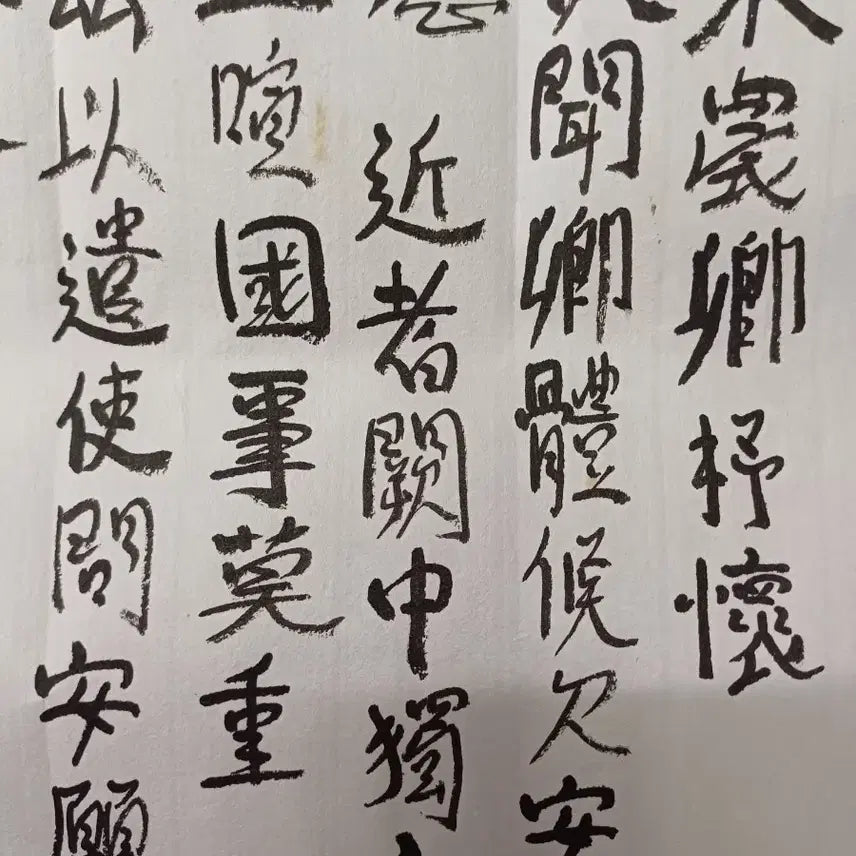 農卿抒懷
聞卿體候欠安
近者闕中獨
暄國事莫重
以遣使問安願